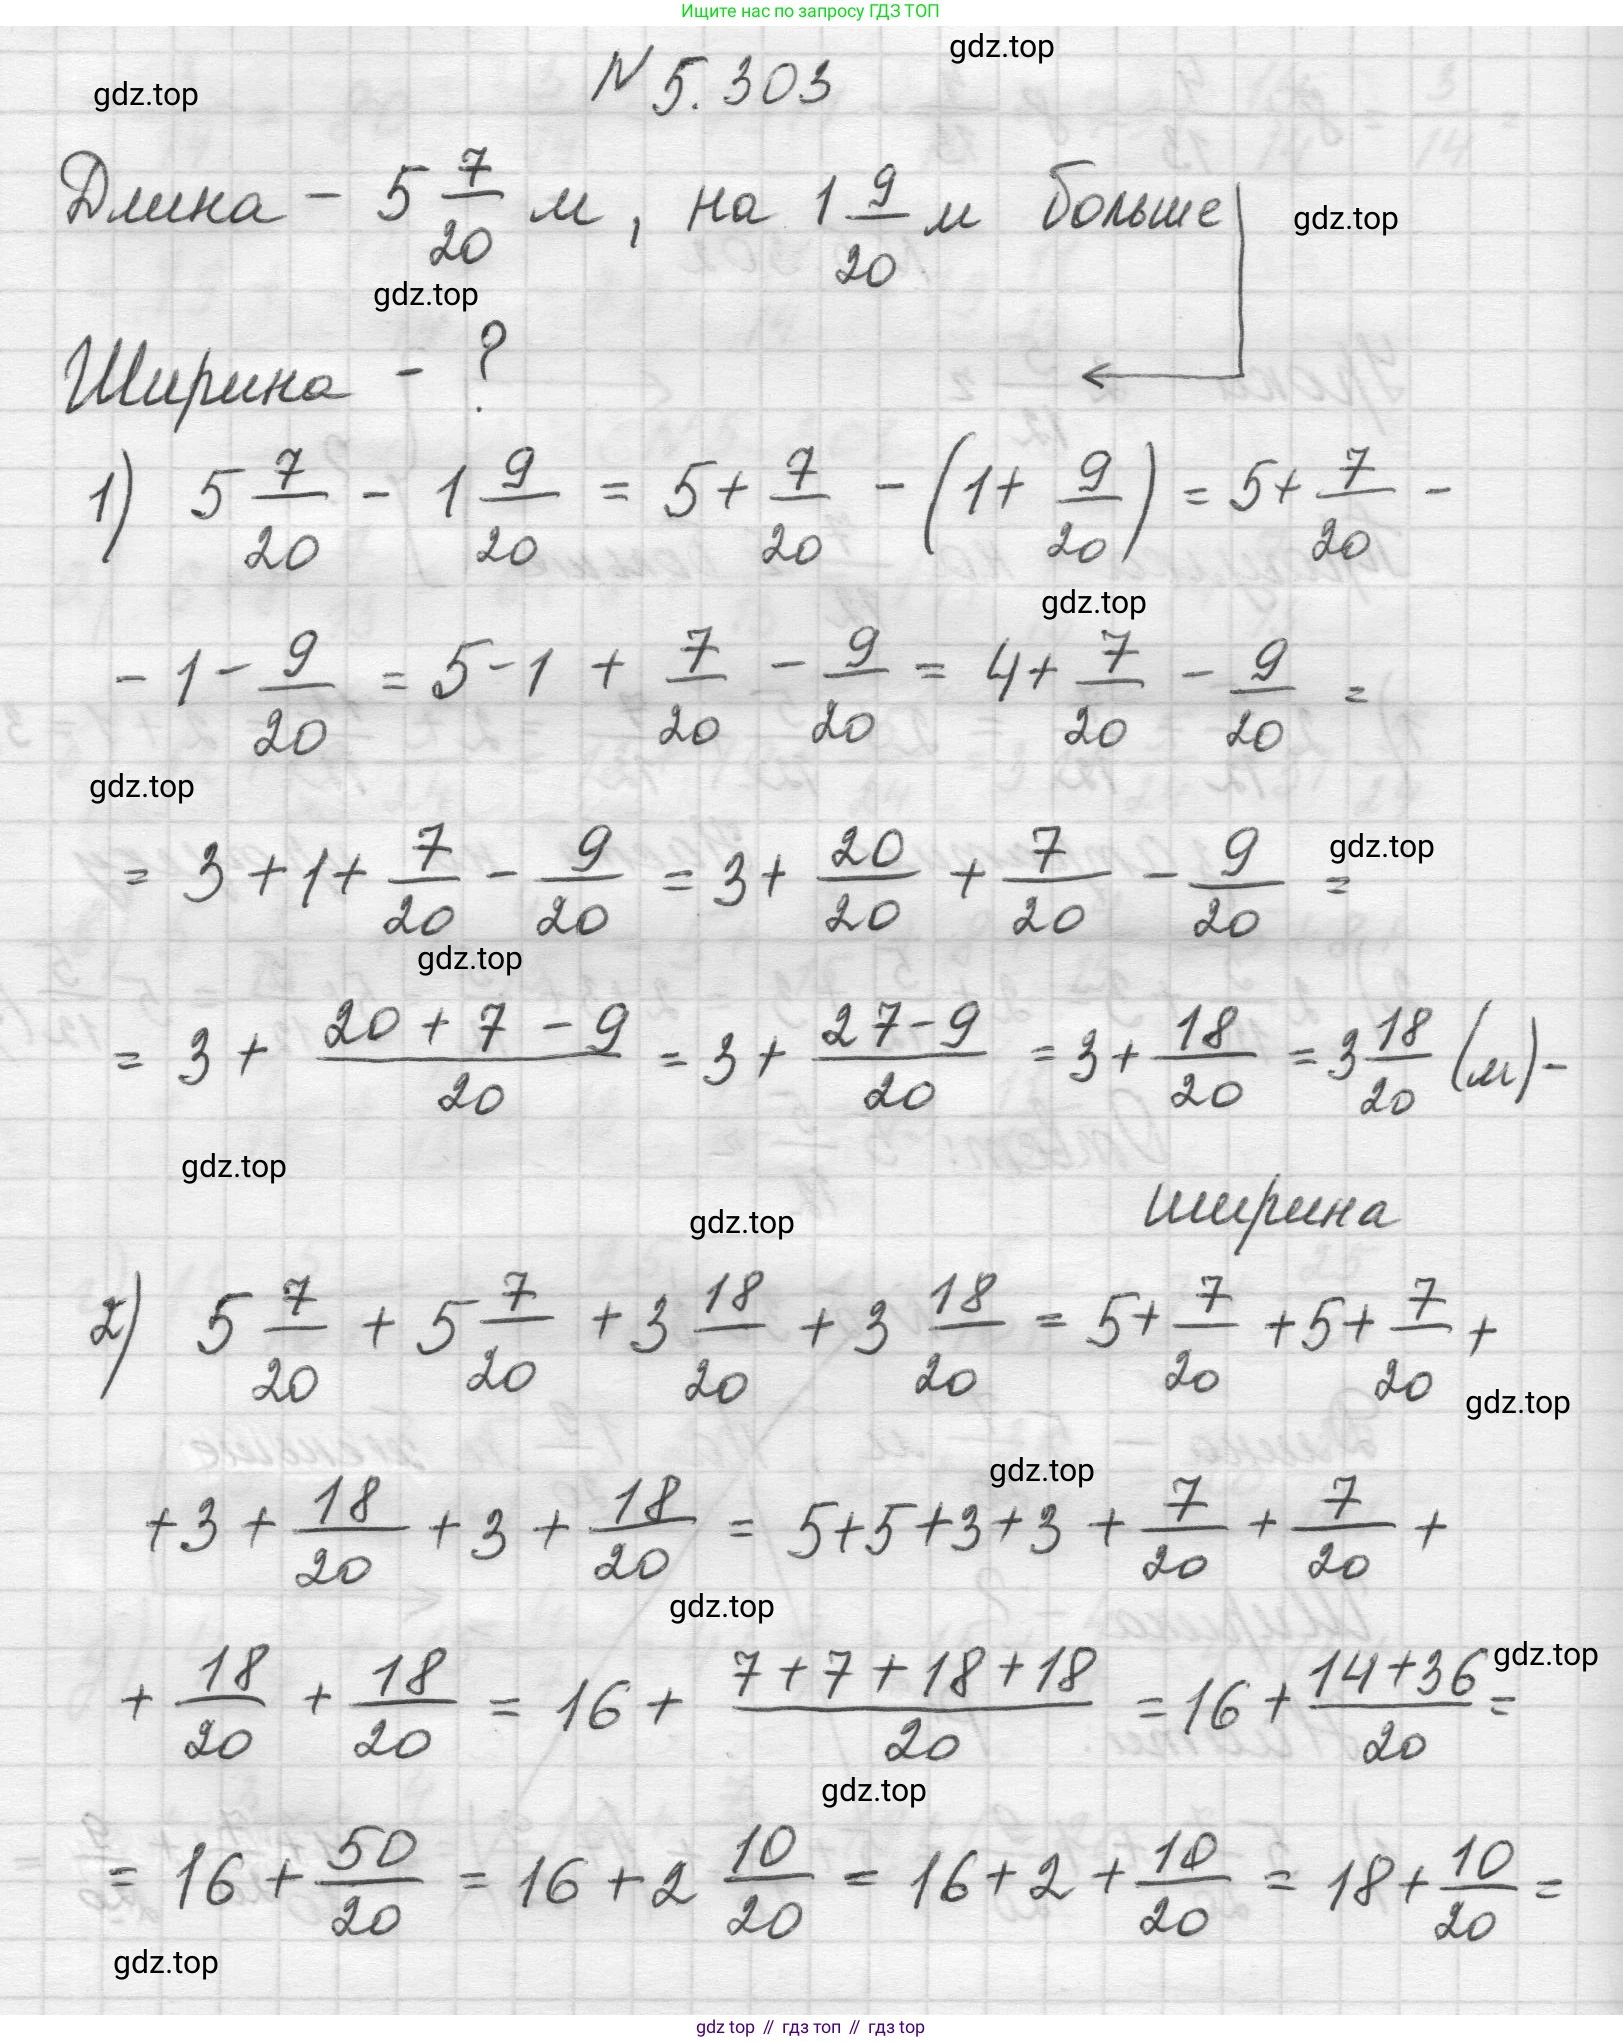 Ищите нас по запросу ГДЗ ТОП
gdz.top
gdz.top
N 5.303
Длина - 5 7/20 м, на 1 9/20 м больше
gdz.top
gdz.top
Ширина - ?
1) 5 7/20 - 1 9/20 = 5 + 7/20 - (1 + 9/20) = 5 + 7/20 -
gdz.top
- 1 - 9/20 = 5 - 1 + 7/20 - 9/20 = 4 + 7/20 - 9/20 =
gdz.top
= 3 + 1 + 7/20 - 9/20 = 3 + 20/20 + 7/20 - 9/20 =
gdz.top
gdz.top
= 3 + (20 + 7 - 9)/20 = 3 + (27 - 9)/20 = 3 + 18/20 = 3 18/20 (м) -
gdz.top
ширина
gdz.top
2) 5 7/20 + 5 7/20 + 3 18/20 + 3 18/20 = 5 + 7/20 + 5 + 7/20 +
gdz.top
gdz.top
+ 3 + 18/20 + 3 + 18/20 = 5 + 5 + 3 + 3 + 7/20 + 7/20 +
gdz.top
+ 18/20 + 18/20 = 16 + (7 + 7 + 18 + 18)/20 = 16 + (14 + 36)/20 =
gdz.top
gdz.top
= 16 + 50/20 = 16 + 2 10/20 = 16 + 2 + 10/20 = 18 + 10/20 =
gdz.top
gdz top // гдз топ // gdz top